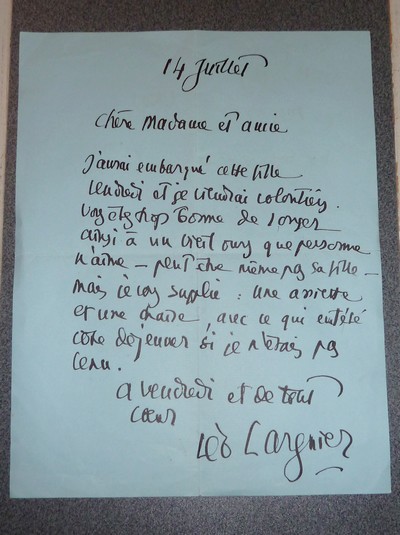 14 Juillet
Chère Madame et amie
J'aurai embarqué cette fille
vendredi et je viendrai volontiers.
Vous êtes trop bonne de songer
ainsi à un vieil ours que personne
n'aime – peut être même pas sa fille –
mais je vous supplie : une assiette
et une chaise, avec ce qui eut été
votre déjeuner si je n'étais pas
venu.
A vendredi et de tout
cœur
Léo Larguier